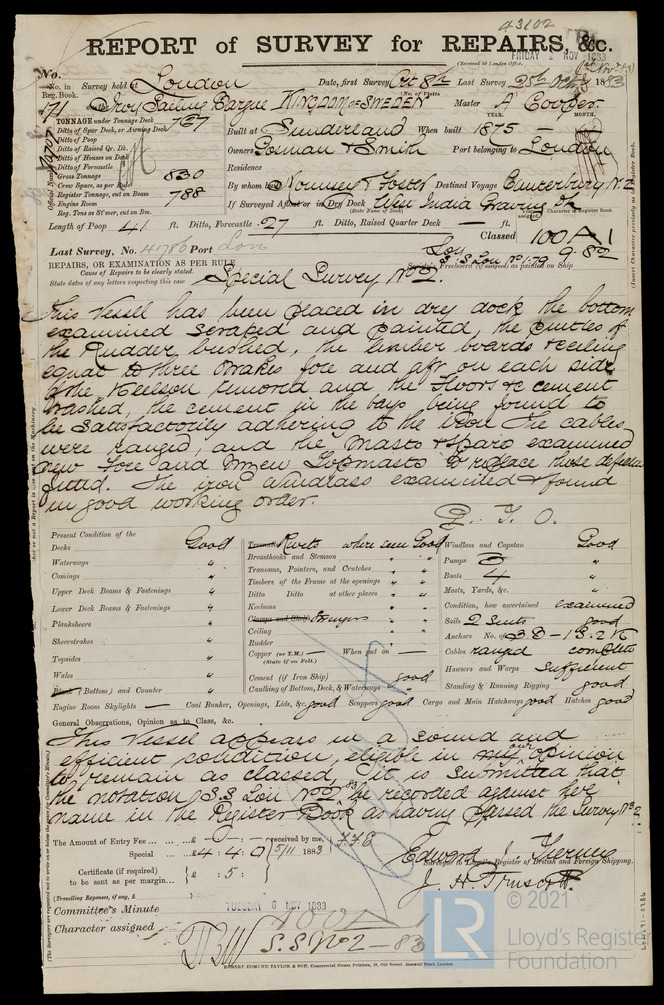 43102
REPORT of SURVEY for REPAIRS, &c.
(Received at London Office,
FRIDAY 2 NOV 1883
No.
No. in Survey held at London Date, first Survey Oct 8th Last Survey 25th Oct 1883
Reg. Book.
(No. of Visits
171 Iron Sailing Barque KINGDOM OF SWEDEN Master A Cooper
TONNAGE under Tonnage Deck 767
YEAR. MONTH.
Ditto of Spar Deck, or Awning Deck
Built at Sunderland When built 1875 —
Ditto of Poop
Ditto of Raised Qr. Dk.
Owners & Smith Port belonging to London
Ditto of Houses on Deck
Ditto of Forecastle
Residence
Gross Tonnage 830
Crew Space, as per Rule
By whom & Foster Destined Voyage Canterbury N Z
Register Tonnage, cut on Beam 788
Engine Room
If Surveyed Afloat or in Dry Dock West India Graving Dk
(State Name of Dock)
Reg. Tons as St'mer, cut on Bm.
Length of Poop 41 ft. Ditto, Forecastle 27 ft. Ditto, Raised Quarter Deck — ft.
Classed 100 A 1
Last Survey, No. 41786 Port Lon
Lon 9.82
S.S Lon No 1-79
REPAIRS, OR EXAMINATION AS PER RULE
Cause of Repairs to be clearly stated.
State dates of any letters respecting this case
Special Survey No 2.
This Vessel has been placed in dry dock the bottom
examined scraped and painted, the pintles of
the Rudder bushed, the limber boards & ceiling
equal to three strakes fore and aft on each side
of the Keelson removed and the Floors & cement
washed, the cement in the bays being found to
be satisfactorily adhering to the iron The cables
were ranged, and the Masts & spars examined
new Fore and Topmasts to replace those defective
fitted. The iron windlass examined & found
in good working order.
P. T. O.
Present Condition of the
Decks Good
Waterways "
Comings "
Upper Deck Beams & Fastenings "
Lower Deck Beams & Fastenings "
Planksheers "
Sheerstrakes "
Topsides "
Wales "
Plank (Bottom) and Counter "
Rivets where seen Good
Breasthooks and Stemson " "
Transoms, Pointers, and Crutches " "
Timbers of the Frame at the openings " "
Ditto Ditto at other places " "
Keelsons " "
Clamps and Shelf Stringers " "
Ceiling " "
Rudder " "
Copper (or Y.M.) — When put on —
(State if on Felt.)
Cement (if Iron Ship) good
Caulking of Bottom, Deck, & Waterways "
Windlass and Capstan Good
Pumps 3 "
Boats 4 "
Masts, Yards, &c. "
Condition, how ascertained examined
Sails 2 Suits good
Anchors No. of 3 B - 1 S. 2 K
Cables ranged complete
Hawsers and Warps sufficient
Standing & Running Rigging good
Engine Room Skylights — Coal Bunker, Openings, Lids, &c. good Scuppers good Cargo and Main Hatchways good Hatches good
General Observations, Opinion as to Class, &c.
This Vessel appears in a sound and
efficient condition, eligible in our opinion
to remain as classed, it is submitted that
the notation S.S Lon No 2 83 be recorded against her
name in the Register Book as having passed the Survey No 2
The Amount of Entry Fee ... ... £ received by me,
Special ... ... £ 4 : 4 : 0 5/11 1883
Certificate (if required) £ : 5 :
to be sent as per margin...
(Travelling Expenses, if any, £
Surveyor to Lloyd's Register of British and Foreign Shipping.
Committee's Minute TUESDAY 6 NOV 1883
Character assigned 100 A 1
S.S No 2 - 83
ROBERT EDMUND TAYLOR & SON, Commercial Steam Printers, 19, Old Street, Goswell Road, London.
© 2021
LR
Lloyd's Register
Foundation